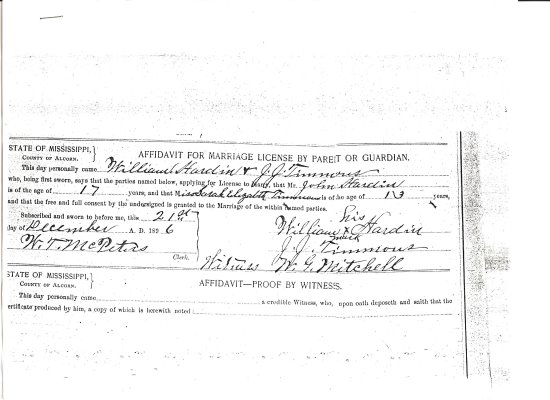 STATE OF MISSISSIPPI,
COUNTY OF ALCORN.
AFFIDAVIT FOR MARRIAGE LICENSE BY PARENT OR GUARDIAN.
This day personally came William Hardin & J. J. Timmons
who, being first sworn, says that the parties named below, applying for License to marry, that Mr. John Hardin
is of the age of 17 years, and that Miss Sarah Elizabeth Timmons is of he age of 13 years,
and that the free and full consent by the undersigned is granted to the Marriage of the within named parties.
Subscribed and sworn to before me, this 21st
day of December A. D. 1896
W. T. McPeters Clerk.
his
William X Hardin
mark
J. J. Timmons
Witness W. G. Mitchell
STATE OF MISSISSIPPI,
COUNTY OF ALCORN.
AFFIDAVIT—PROOF BY WITNESS.
This day personally came a credible Witness, who, upon oath deposeth and saith that the
ertificate produced by him, a copy of which is herewith noted